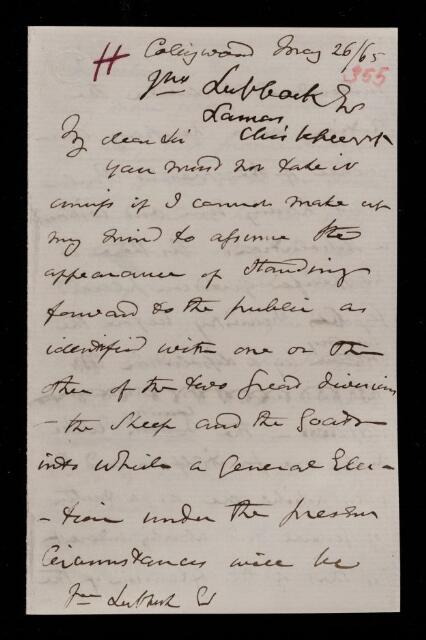 H Collingwood May 26/65
355
Jno Lubbock Esq
Lamas
Chislehurst
My dear Sir
You must not take it
amiss if I cannot make up
my mind to assume the
appearance of standing
forward to the public as
identified with one or the
other of the two great divisions
- the Sheep and the Goats
into which a General Elec-
-tion under the present
Circumstances will be
Jno Lubbock Esq